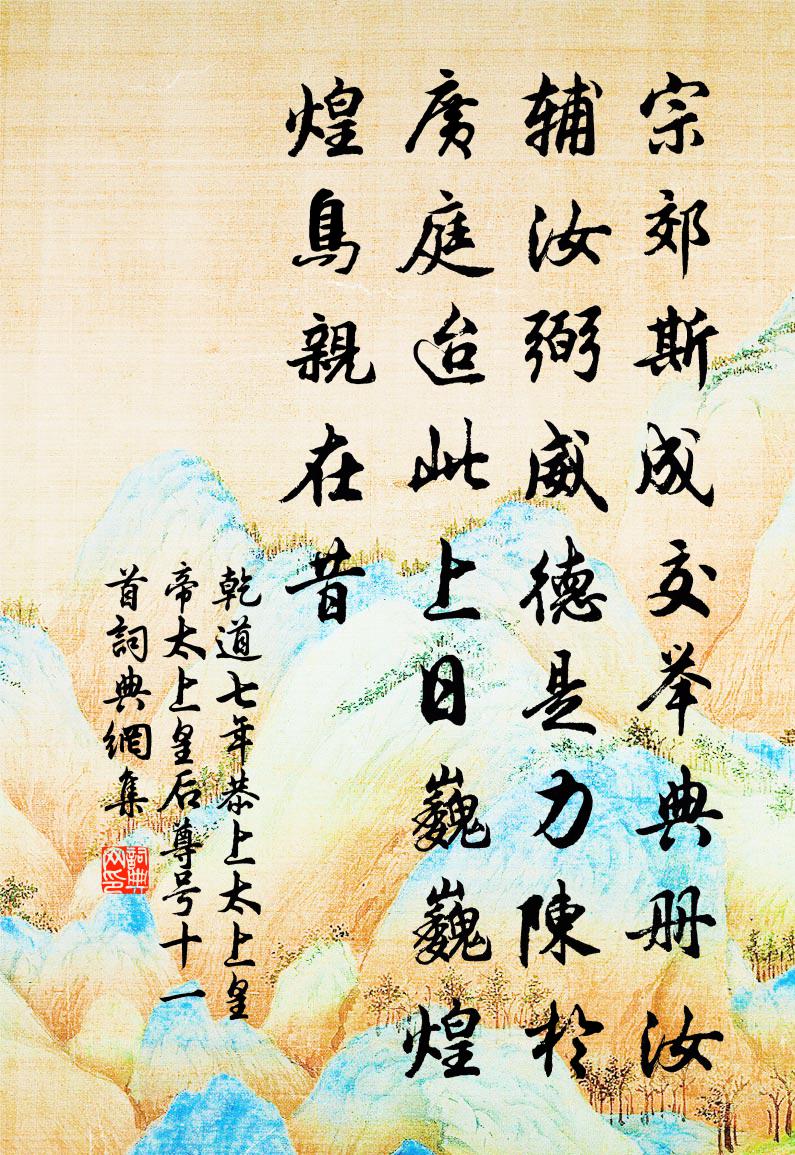 宗郊斯成交举典册汝
辅汝弼威德是力陳於
廣庭迨此上日巍巍煌
煌親在昔
乾道七年恭上太上皇
帝太上皇后尊号十一
首詞典網集
詞典
网印